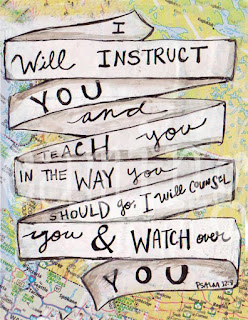 I
Will INSTRUCT
YOU
and
TEACH you
IN THE WAY you
SHOULD go; I will COUNSEL
you & WATCH over
YOU
PSALM 32:8